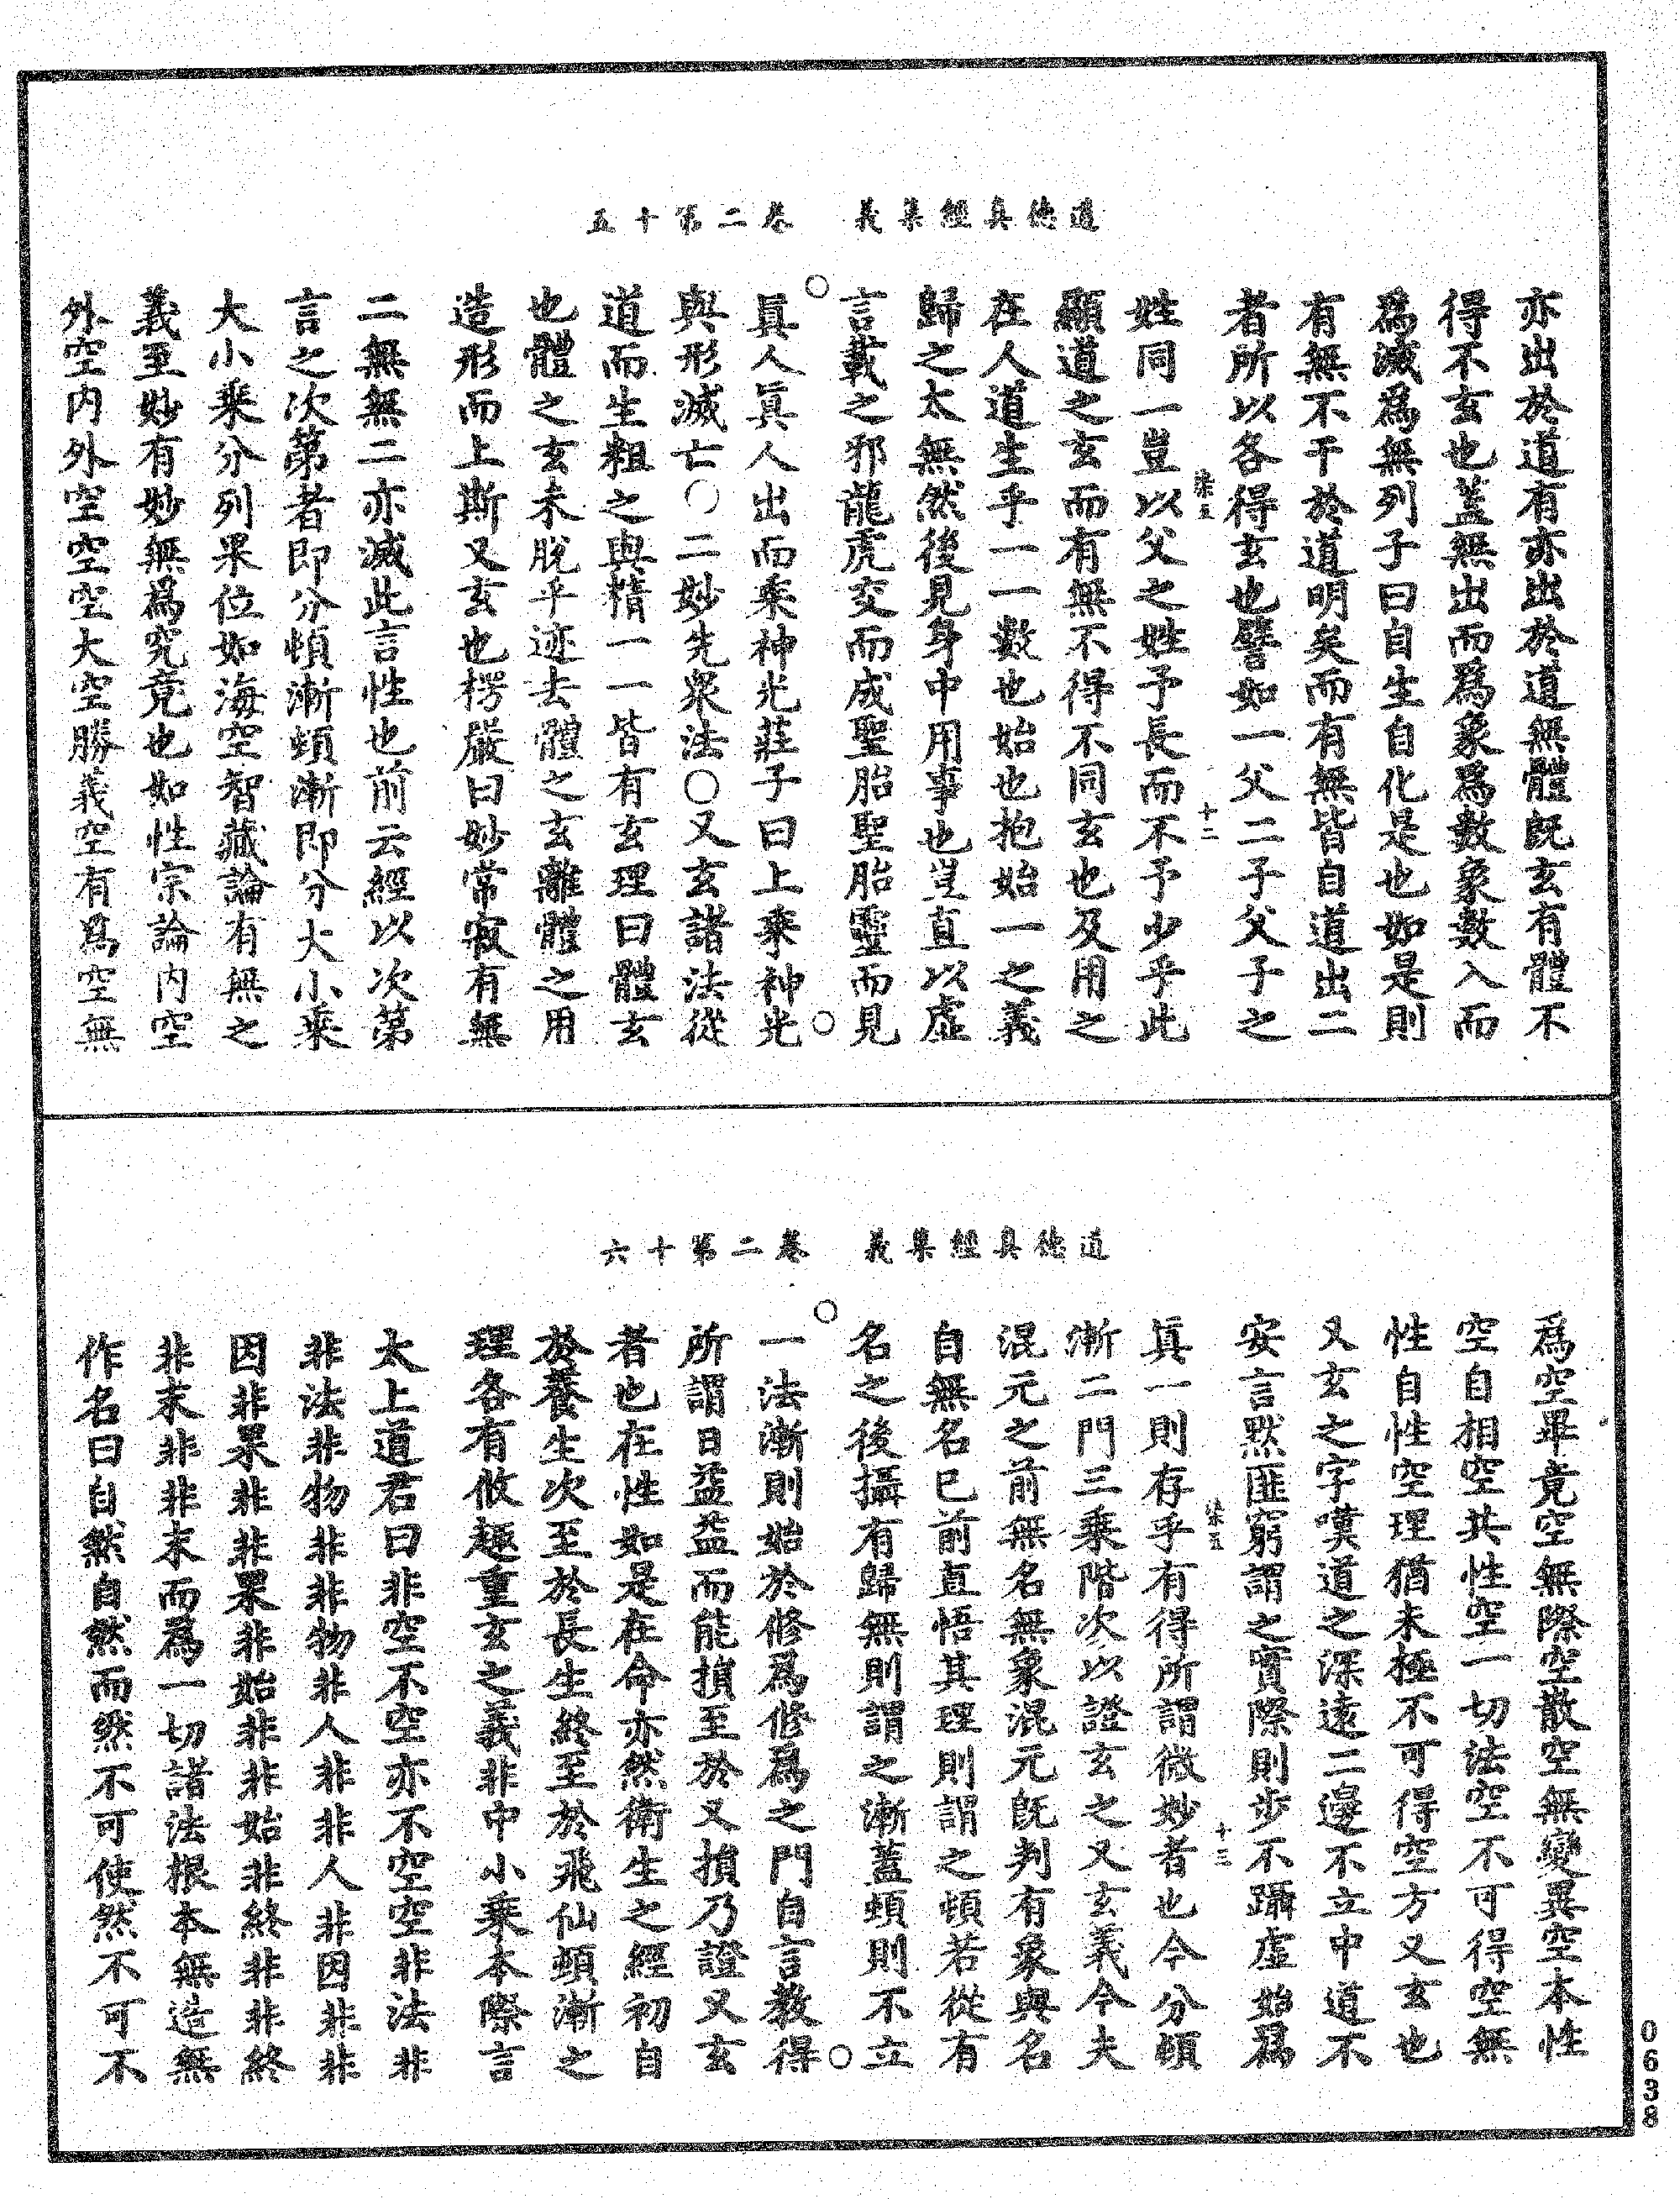 道德真經集義　卷二第十五
亦出於道有亦出於道無體既玄有體不
得不玄也蓋無出而爲象爲數象數入而
爲滅爲無列子曰自生自化是也如是則
有無不干於道明矣而有無皆自道出二
者所以各得玄也譬如一父二子父子之
十二
姓同一豈以父之姓予長而不予少乎此
顯道之玄而有無不得不同玄也及用之
在人道生乎一一數也始也抱始一之義
歸之太無然後見身中用事也豈直以虛
言載之邪龍虎交而成聖胎聖胎靈而見
眞人眞人出而乘神光莊子曰上乘神光
與形滅亡○二妙先衆法○又玄諸法從
道而生粗之與精一一皆有玄理曰體玄
也體之玄未脫乎迹去體之玄離體之用
造形而上斯又玄也楞嚴曰妙常寂有無
二無無二亦滅此言性也前云經以次第
言之次第者即分頓漸頓漸即分大小乘
大小乘分列果位如海空智藏論有無之
義至妙有妙無爲究竟也如性宗論內空
外空內外空空空大空勝義空有爲空無
道德真經集義　卷二第十六
爲空畢竟空無際空散空無變異空本性
空自相空共性空一切法空不可得空無
性自性空理猶未極不可得空方又玄也
又玄之字嘆道之深遠二邊不立中道不
安言默匪窮謂之實際則步不躡虛始爲
十三
眞一則存乎有得所謂微妙者也今分頓
漸二門三乘階次以證玄之又玄義今夫
混元之前無名無象混元既判有象與名
自無名已前直悟其理則謂之頓若從有
名之後攝有歸無則謂之漸蓋頓則不立
一法漸則始於修爲修爲之門自言教得
所謂日益益而能損至於又損乃證又玄
者也在性如是在命亦然衛生之經初自
於養生次至於長生終至於飛仙頓漸之
理各有攸趣重玄之義非中小乘本際言
太上道君曰非空不空亦不空空非法非
非法非物非非物非人非非人非因非非
因非果非非果非始非非始非終非非終
非末非非末而爲一切諸法根本無造無
作名曰自然自然而然不可使然不可不
0638